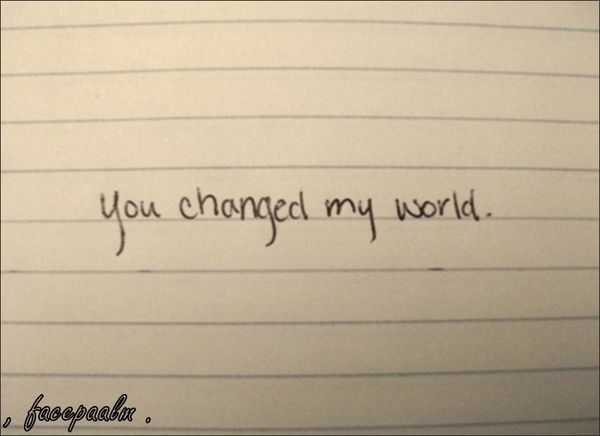 you changed my world.
, facepaalm .